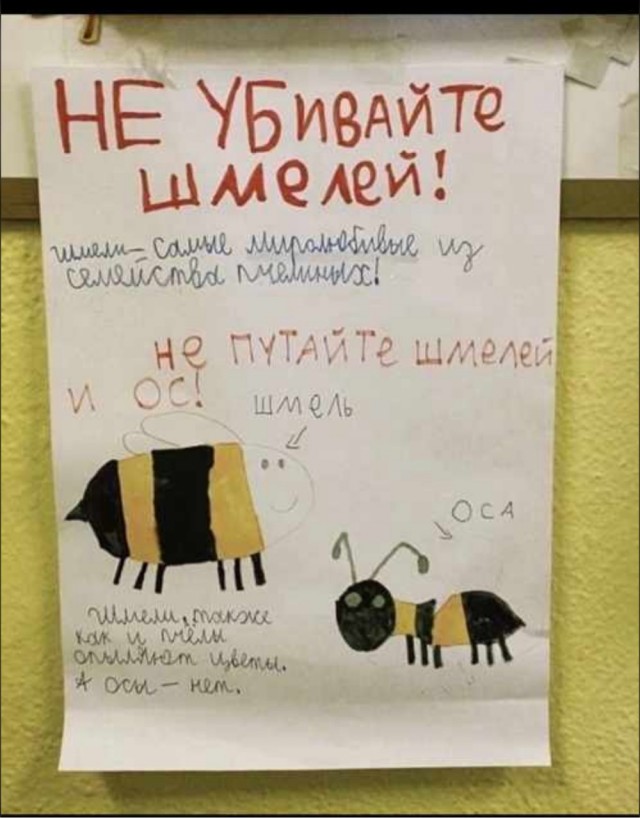 НЕ УБИВАЙТЕ
ШМЕЛЕЙ!
шмели – самые миролюбивые из
семейства пчелиных!
НЕ ПУТАЙТЕ ШМЕЛЕЙ
И ОС!
ШМЕЛЬ
ОСА
Шмели, также
как и пчёлы
опыляют цветы.
А осы – нет.